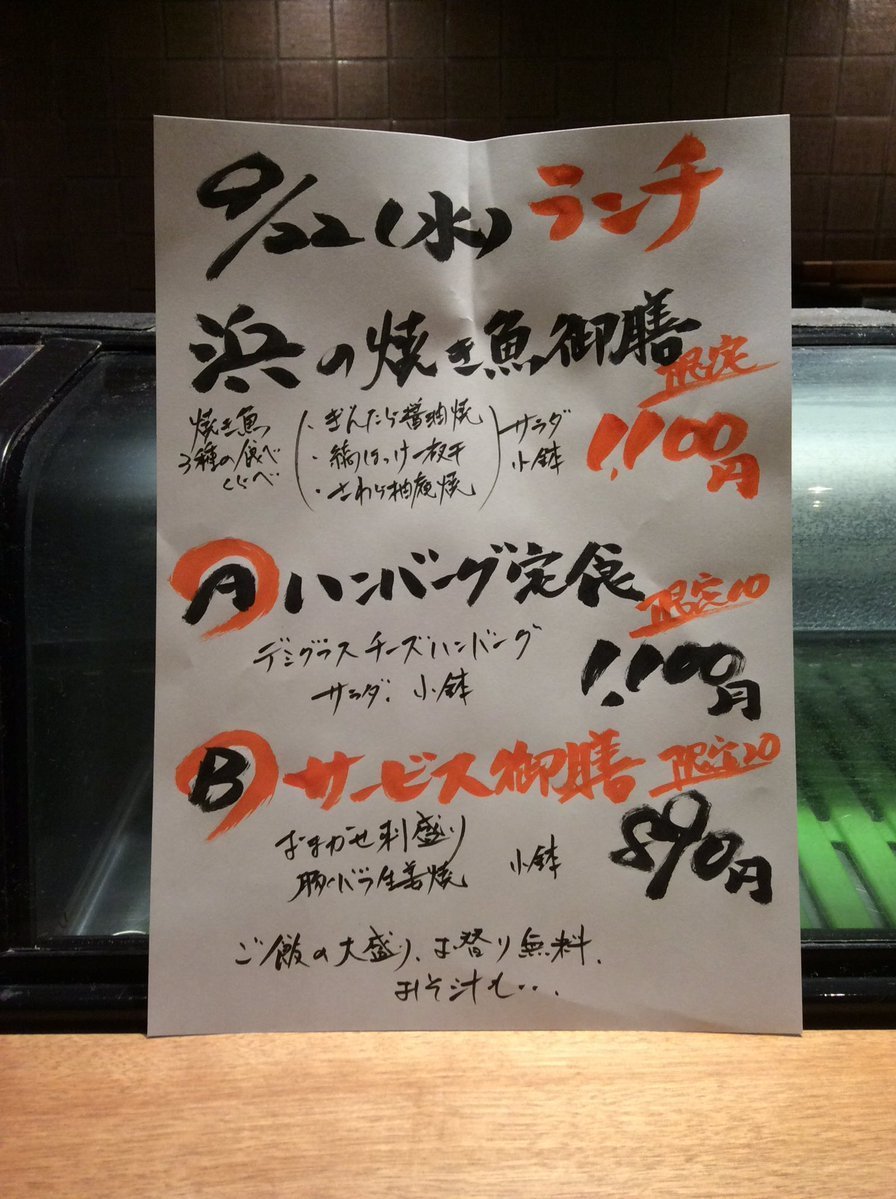 9/22(水) ランチ
浜の焼き魚御膳
限定
1,100円
焼き魚
3種の食べ
くらべ
・ぎんたら醤油焼
・縞ほっけ一夜干
・さわら柚庵焼
サラダ
小鉢
A ハンバーグ定食
限定10
デミグラスチーズハンバーグ
サラダ、小鉢
1,100円
B サービス御膳 限定20
おまかせ刺盛り
豚バラ生姜焼
小鉢
890円
ご飯の大盛り、お替り無料、
おそ汁も・・、